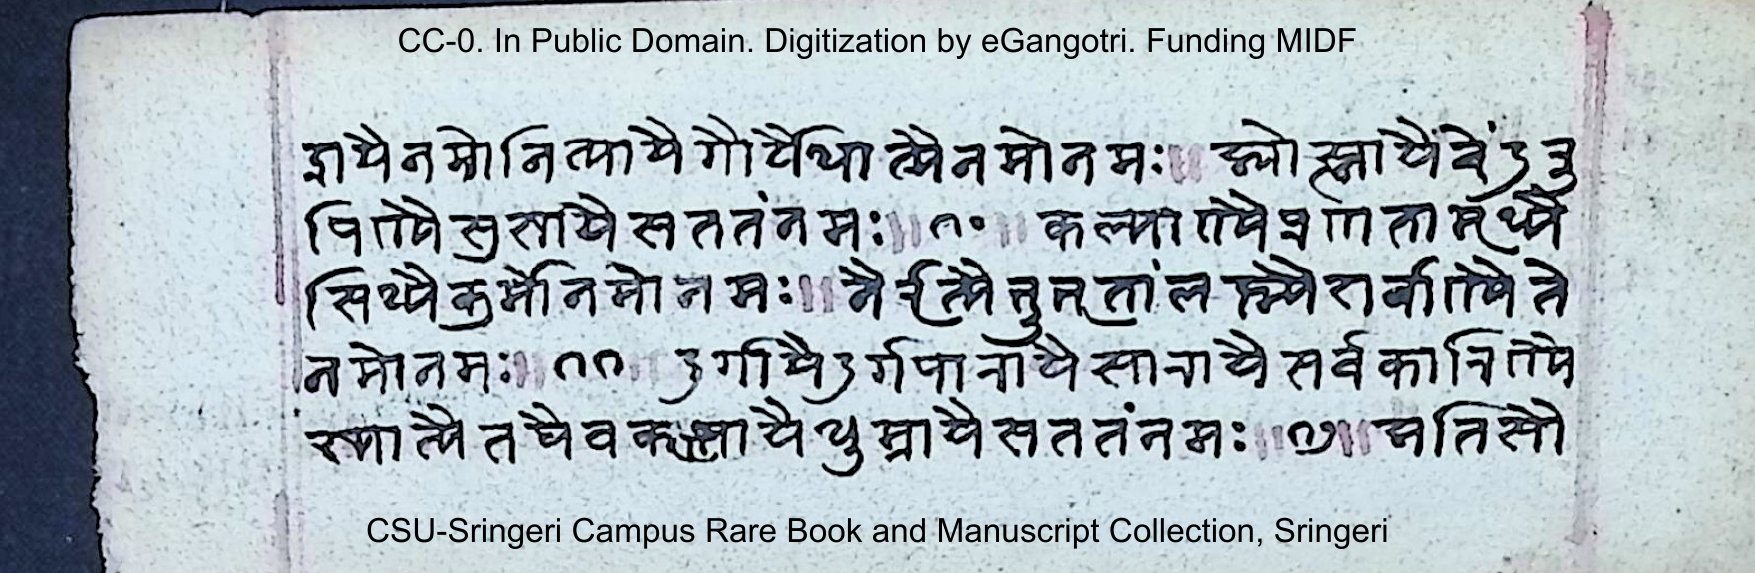 CC-0. In Public Domain. Digitization by eGangotri. Funding MIDF
द्रायै नमो नित्यायै गौर्यै धात्र्यै नमो नमः ॥ ज्योत्स्नायै चेंदु
रूपिण्यै सुखायै सततं नमः ॥ १० ॥ कल्याण्यै प्रणतामृध्यै
सिध्यै कुर्मो नमो नमः ॥ नैर्ऋत्यै भूभृतां लक्ष्म्यै शर्वाण्यै ते
नमो नमः ॥ ११ ॥ दुर्गायै दुर्गपारायै सारायै सर्वकारिण्यै
ख्यात्यै तथैव कृष्णायै धूम्रायै सततं नमः ॥ १२ ॥ अतिसौ
CSU-Sringeri Campus Rare Book and Manuscript Collection, Sringeri